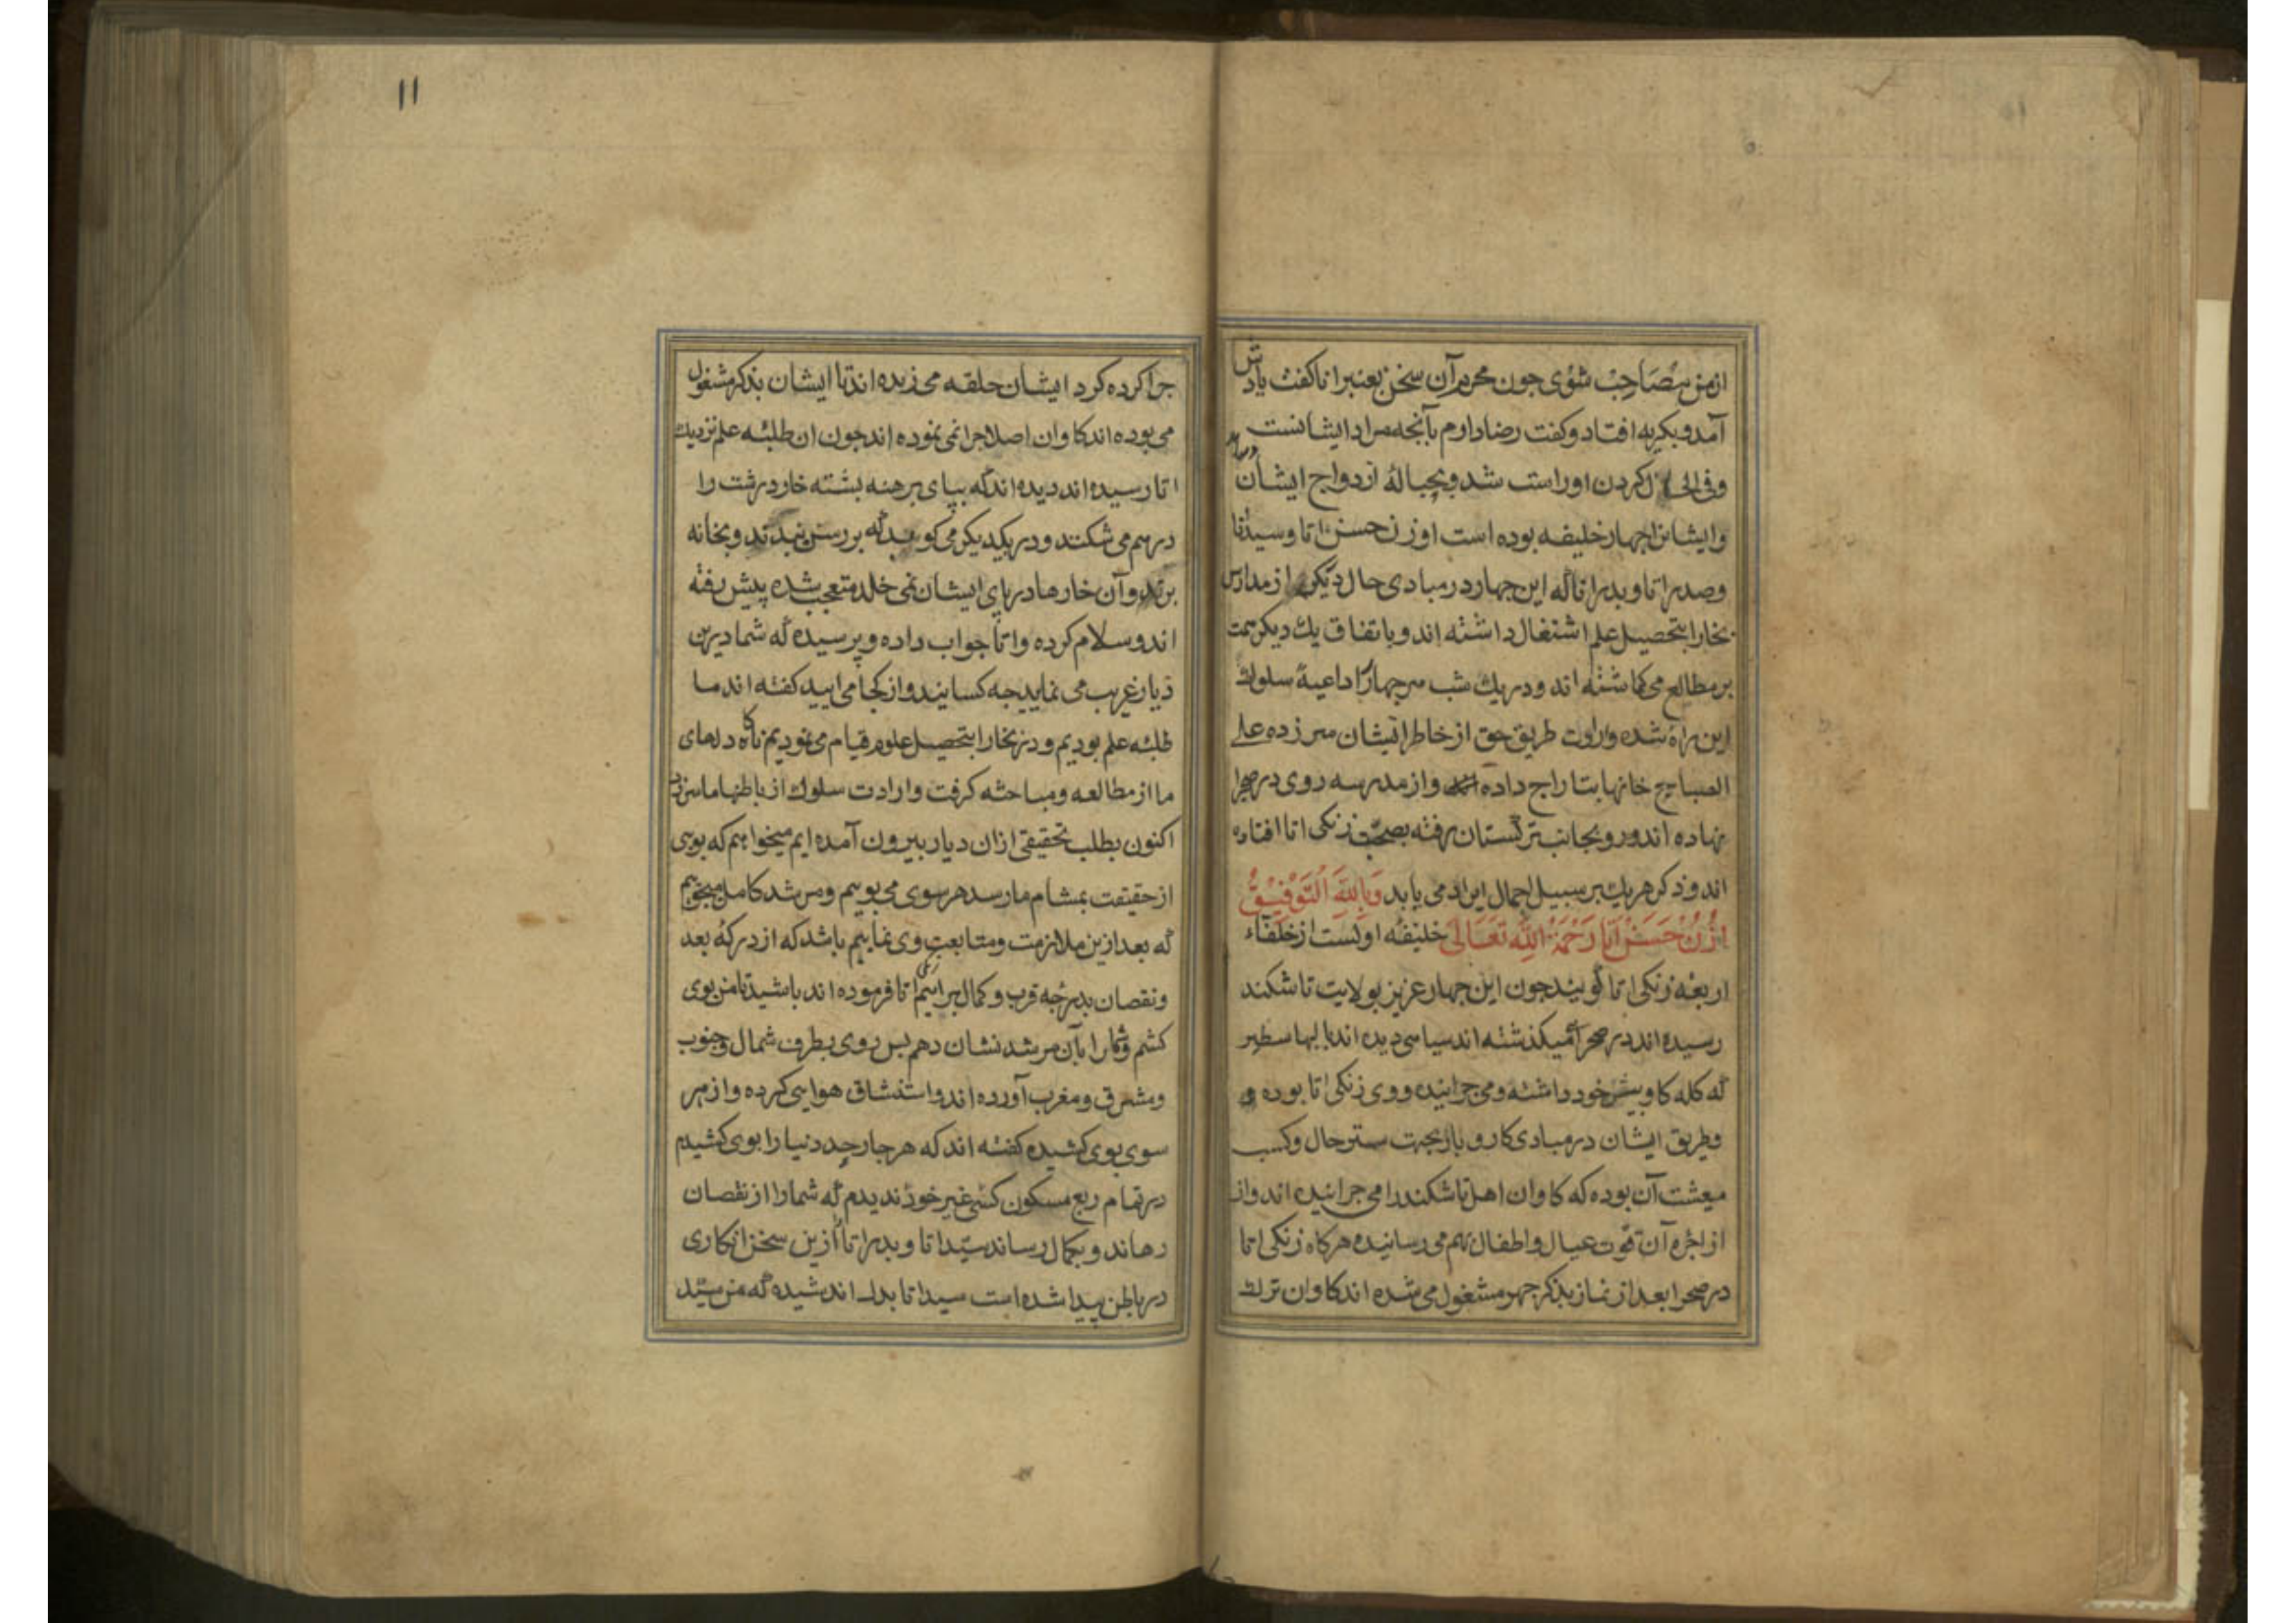 ازمن مصاحب شوی جون محرم آن سخن بعنبر اناکفت یادش
آمد و بکریه افتاد و کفت رضا دارم بآنجه مراد ایشانست
وفی الحال کردن او راست شد و بحبالهٔ ازدواج ایشان
وایشانرا جهار خلیفه بوده است اوزن حسن اتا و سید اتا
وصدر اتا و بدر اتا که این جهار در مبادی حال دیکر از مدارس
بخارا بتحصیل علم اشتغال داشته اند و باتفاق یك دیکر همت
بر مطالع می کماشته اند و در یك شب هر جهار را داعیهٔ سلوك
این راه شده و ارادت طریق حق از خاطر ایشان سر زده علی
الصباح خانها بتاراج داده و از مدرسه روی در صحرا
نهاده اند و رو بجانب ترکستان رفته بصحبت زنکی اتا افتاده
اند و ذکر هر یك بر سبیل اجمال ایراد می یابد وبالله التوفیق
اوزن حسن اتا رحمة الله تعالی خلیفهٔ اولست از خلفاء
اربعهٔ زنکی اتا کویند جون این جهار عزیز بولایت تاشکند
رسیده اند در صحرا میکذشته اند سیاهی دیده اند با لبها سطبر
که کله کاو پیش خود داشته و می جرانیده و وی زنکی اتا بوده و
وطریق ایشان در مبادی کار و بار بجهت ستر حال و کسب
معیشت آن بوده که کاوان اهل تاشکند را می جرانیده اند و از
از اجره آن قوت عیال و اطفال بهم می رسانیده هرکاه زنکی اتا
در صحرا بعد از نماز بذکر جهر مشغول می شده اند کاوان ترك
۱۱
جرا کرده کرد ایشان حلقه می زده اند تا ایشان بذکر مشغول
می بوده اند کاوان اصلا جرا نمی نموده اند جون ان طلبهٔ علم نزدیك
اتا رسیده اند دیده اند که بپای برهنه پشته خار درشت را
درهم می شکنند و در یکدیکر می کوبند که بر رسن بندند و بخانه
برند و آن خارها در پای ایشان نمی خلد متعجب شده پیش رفته
اند و سلام کرده و اتا جواب داده و پرسیده که شما درین
دیار غریب می نمایید جه کسانید و از کجا می ایید کفته اند ما
طلبهٔ علم بودیم و در بخارا بتحصیل علوم قیام می نمودیم ناکاه دلهای
ما از مطالعه و مباحثه کرفت و ارادت سلوك از باطنها ما سرزد
اکنون بطلب تحقیقی ازان دیار بیرون آمده ایم میخواهیم که بویی
از حقیقت بمشام ما رسد هر سوی می پوییم و مرشد کامل میجوییم
که بعد ازین ملازمت و متابعت وی نماییم باشد که از درکهٔ بعد
و نقصان بدرجه قرب و کمال برسیم اتا فرموده اند باشید تا من بوی
کشم و شما را بآن مرشد نشان دهم پس روی بطرف شمال و جنوب
ومشرق و مغرب آورده اند و استنشاق هوایی کرده و از هر
سوی بوی کشیده کفته اند که هر جار حد دنیا را بوی کشیدم
در تمام ربع مسکون کسی غیر خود ندیدم که شما را از نقصان
رهاند و بکمال رساند سید اتا و بدر اتا را ازین سخن انکاری
در باطن پیدا شده است سید اتا بدل اندیشیده که من سید